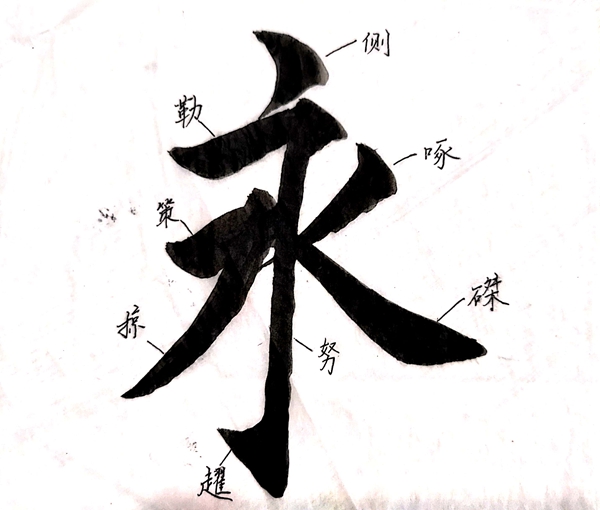 永
侧
勒
啄
策
磔
掠
努
趯